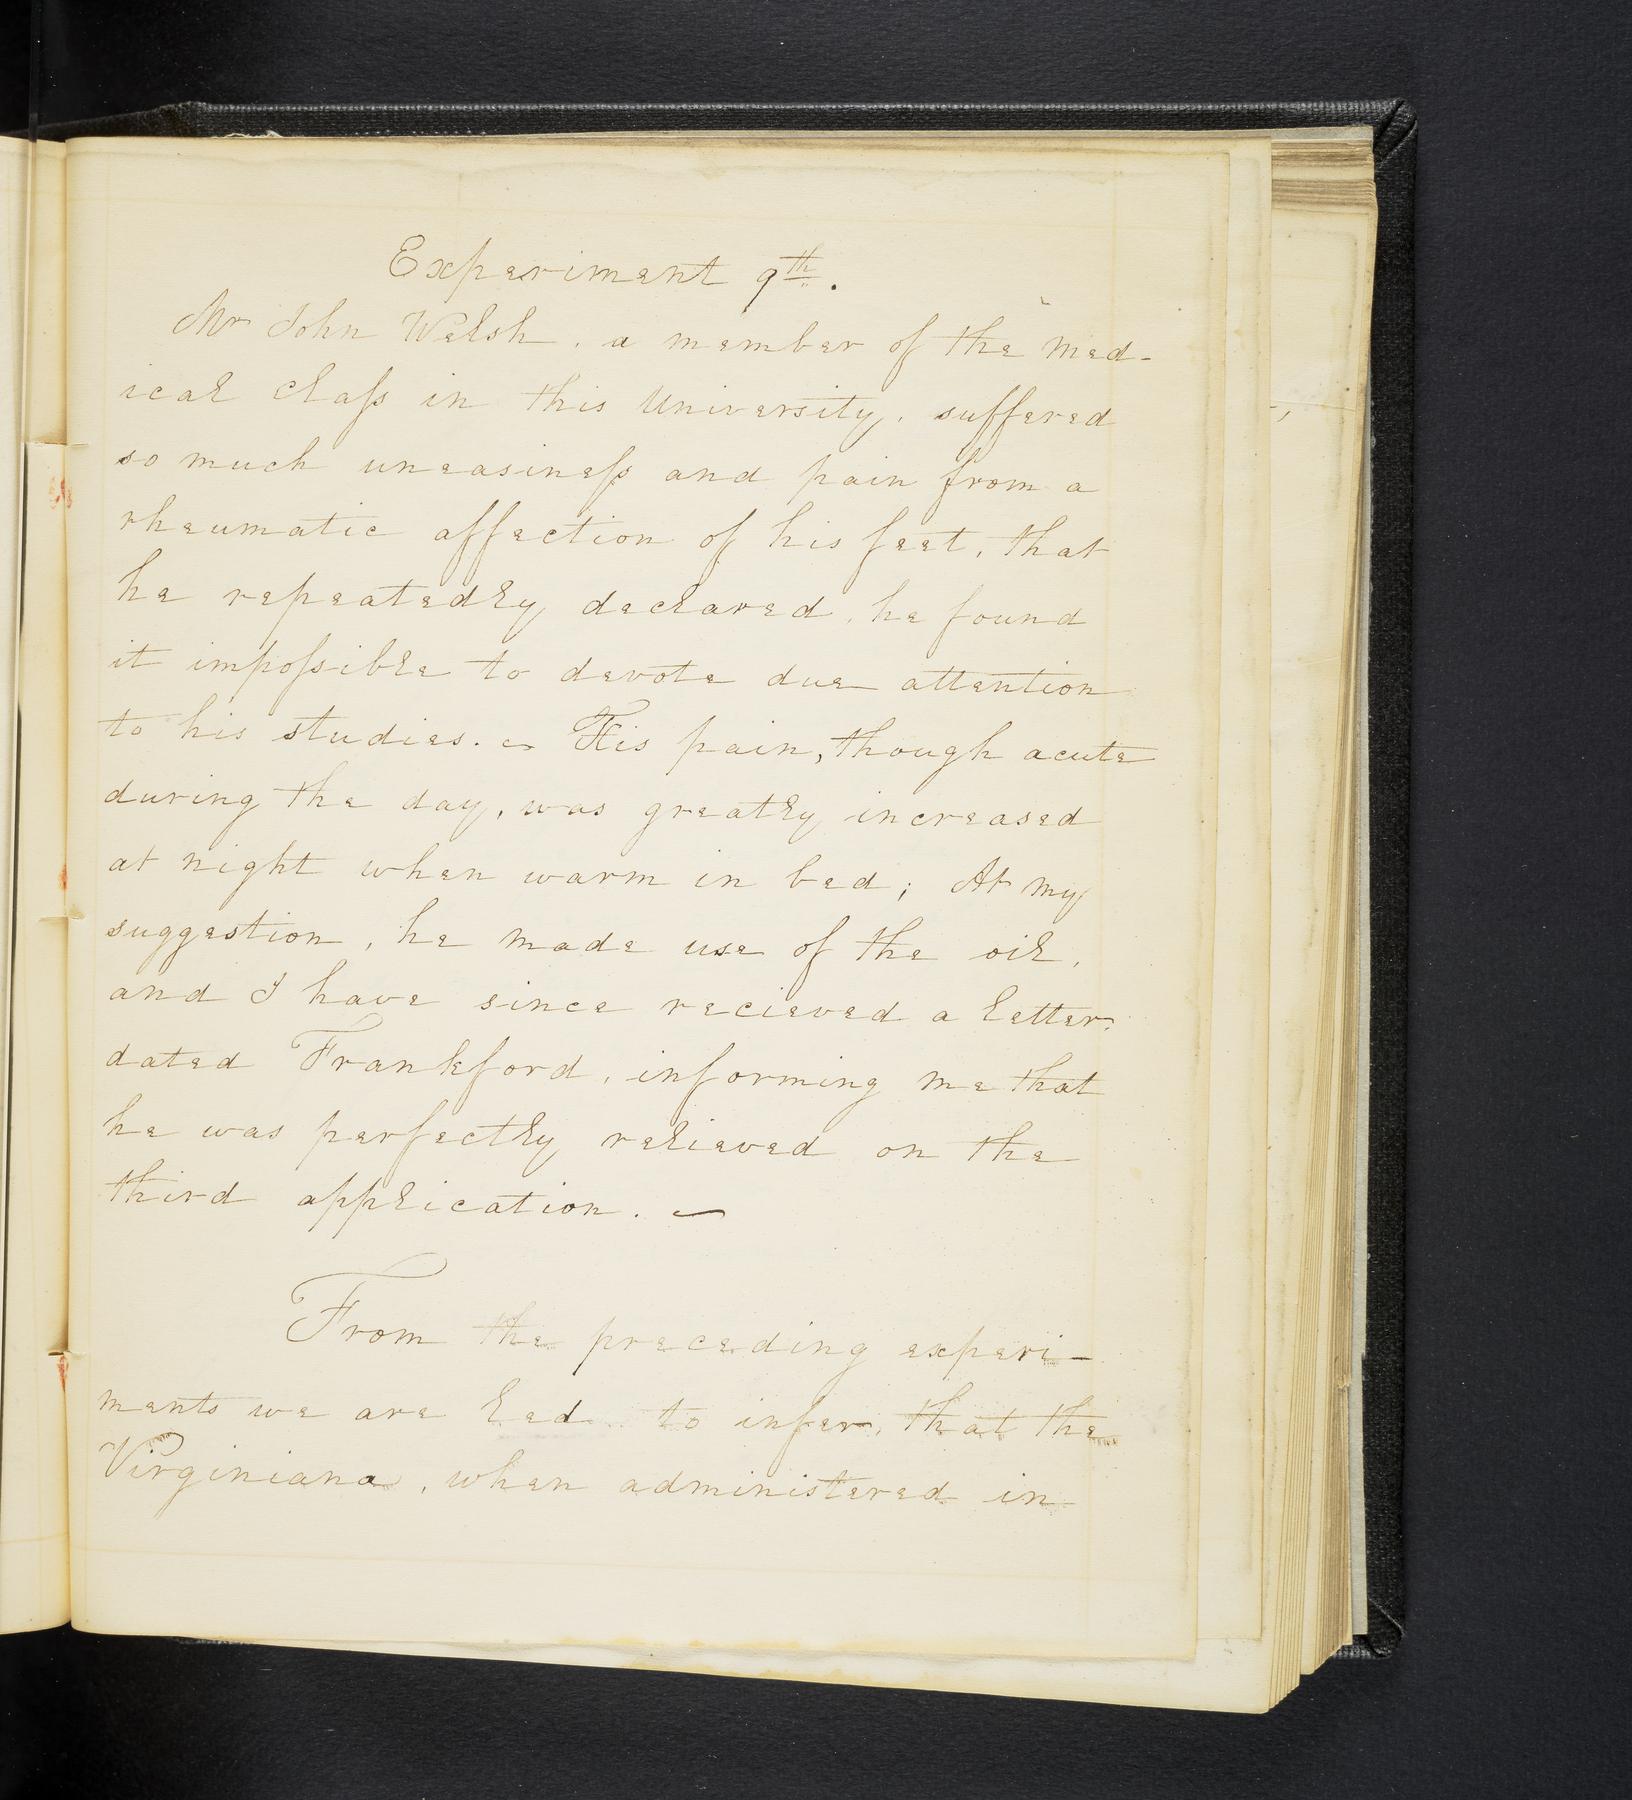 Experiment 9th.
Mr John Welsh, a member of the med-
ical class in this University, suffered
so much uneasiness and pain from a
rheumatic affection of his feet, that
he repeatedly declared, he found
it impossible to devote due attention
to his studies. ~ His pain, though acute
during the day, was greatly increased
at night when warm in bed; At my
suggestion, he made use of the oil,
and I have since recieved a letter
dated Frankford, informing me that
he was perfectly relieved on the
third application. ~
From the preceding experi-
ments we are led to infer, that the
Virginiana, when administered in